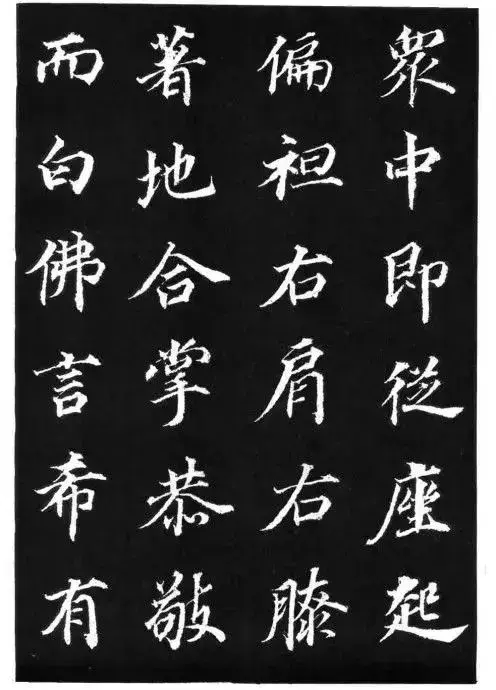 眾中即從座起
偏袒右肩右膝
著地合掌恭敬
而白佛言希有